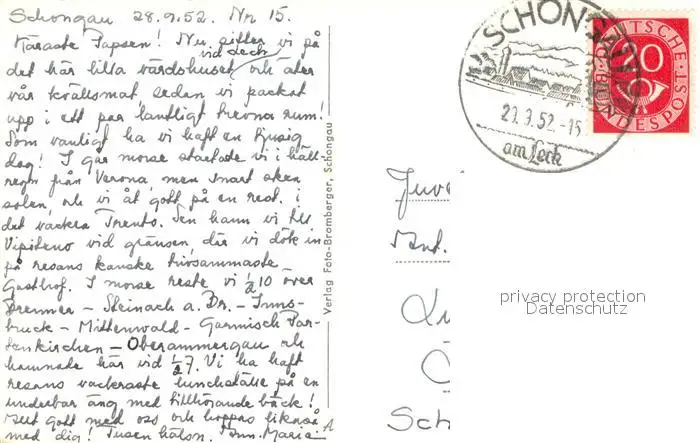 Schongau 28.9.52. Nr 15.
Käraste Papsen! Nu sitter vi på
vid Lech
det här lilla värdshuset och äter
vår kvällsmat sedan vi packat
upp i ett par lantligt trevna rum!
Som vanligt ha vi haft en tjusig
dag! I går morse startade vi i häll-
regn från Verona, men snart sken
solen, och vi åt gott på en rest. i
det vackra Trento. Sen hann vi till
Vipiteno vid gränsen, där vi dök in
på resans kanske trivsammaste
Gasthof. I morse reste vi ½ 10 över
Brenner – Steinach a. Br. – Inns-
bruck – Mittenwald – Garmisch Par-
tenkirchen – Oberammergau och
hamnade här vid ½ 7. Vi ha haft
resans vackraste lunchställe på en
underbar äng med tillhörande bäck!
Allt gott med oss och hoppas likaså
med dig! Tusen hälsn. Ann-Marie
Verlag Foto-Bromberger, Schongau
SCHONGAU
29.9.52.-15
am Lech
DEUTSCHE BUNDESPOST
20
privacy protection
Datenschutz
Sch